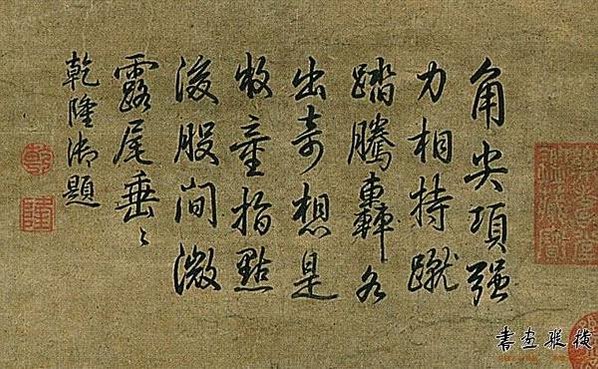 角尖項强
力相持蹴
踏騰轟各
出奇想是
牧童指點
後股間微
露尾垂〻
乾隆御題
乾
隆
書画